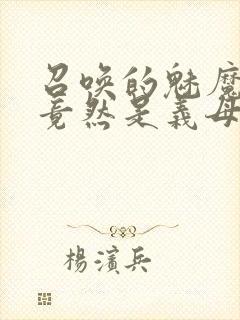 召唤的魅魔
竟然是義母
楊濱兵